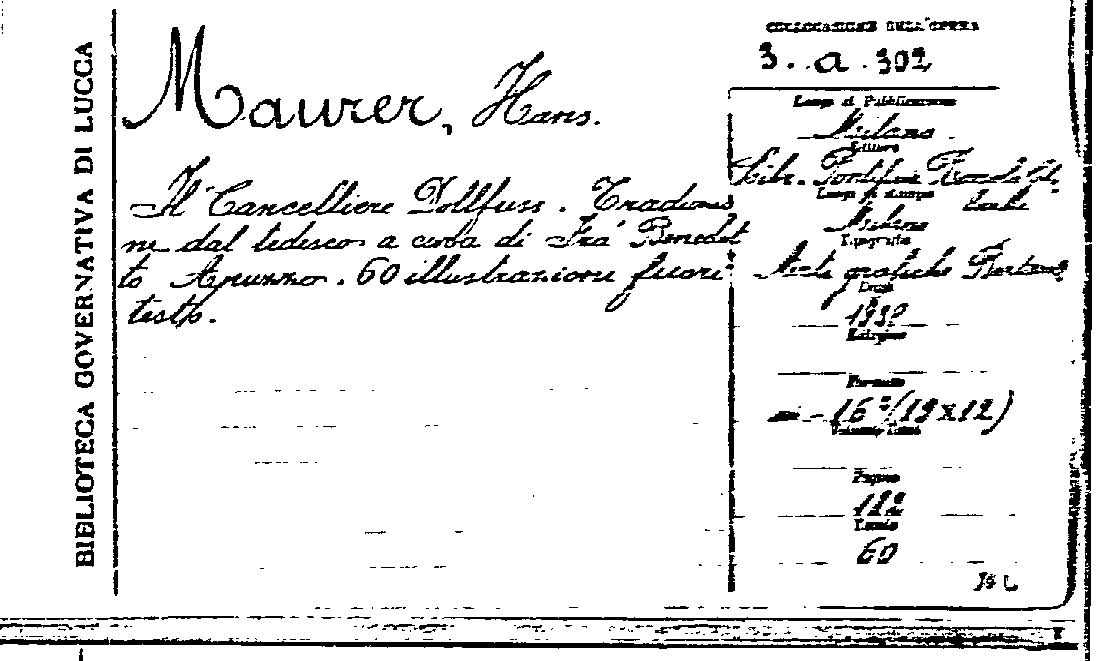 BIBLIOTECA GOVERNATIVA DI LUCCA
Maurer, Hans.
Il Cancelliere Dollfuss. Traduzio
ne dal tedesco a cura di Fra Benedet
to Apuzzo. 60 illustrazioni fuori
testo.
COLLOCAZIONE DELL'OPERA
3. a. 302
Luogo di Pubblicazione
Milano
Editore
Libr. Pontificia
Luogo di stampa
Milano
Tipografia
Arti grafiche
Edizione
Formato
16º (19x12)
Pagine
Tavole
60